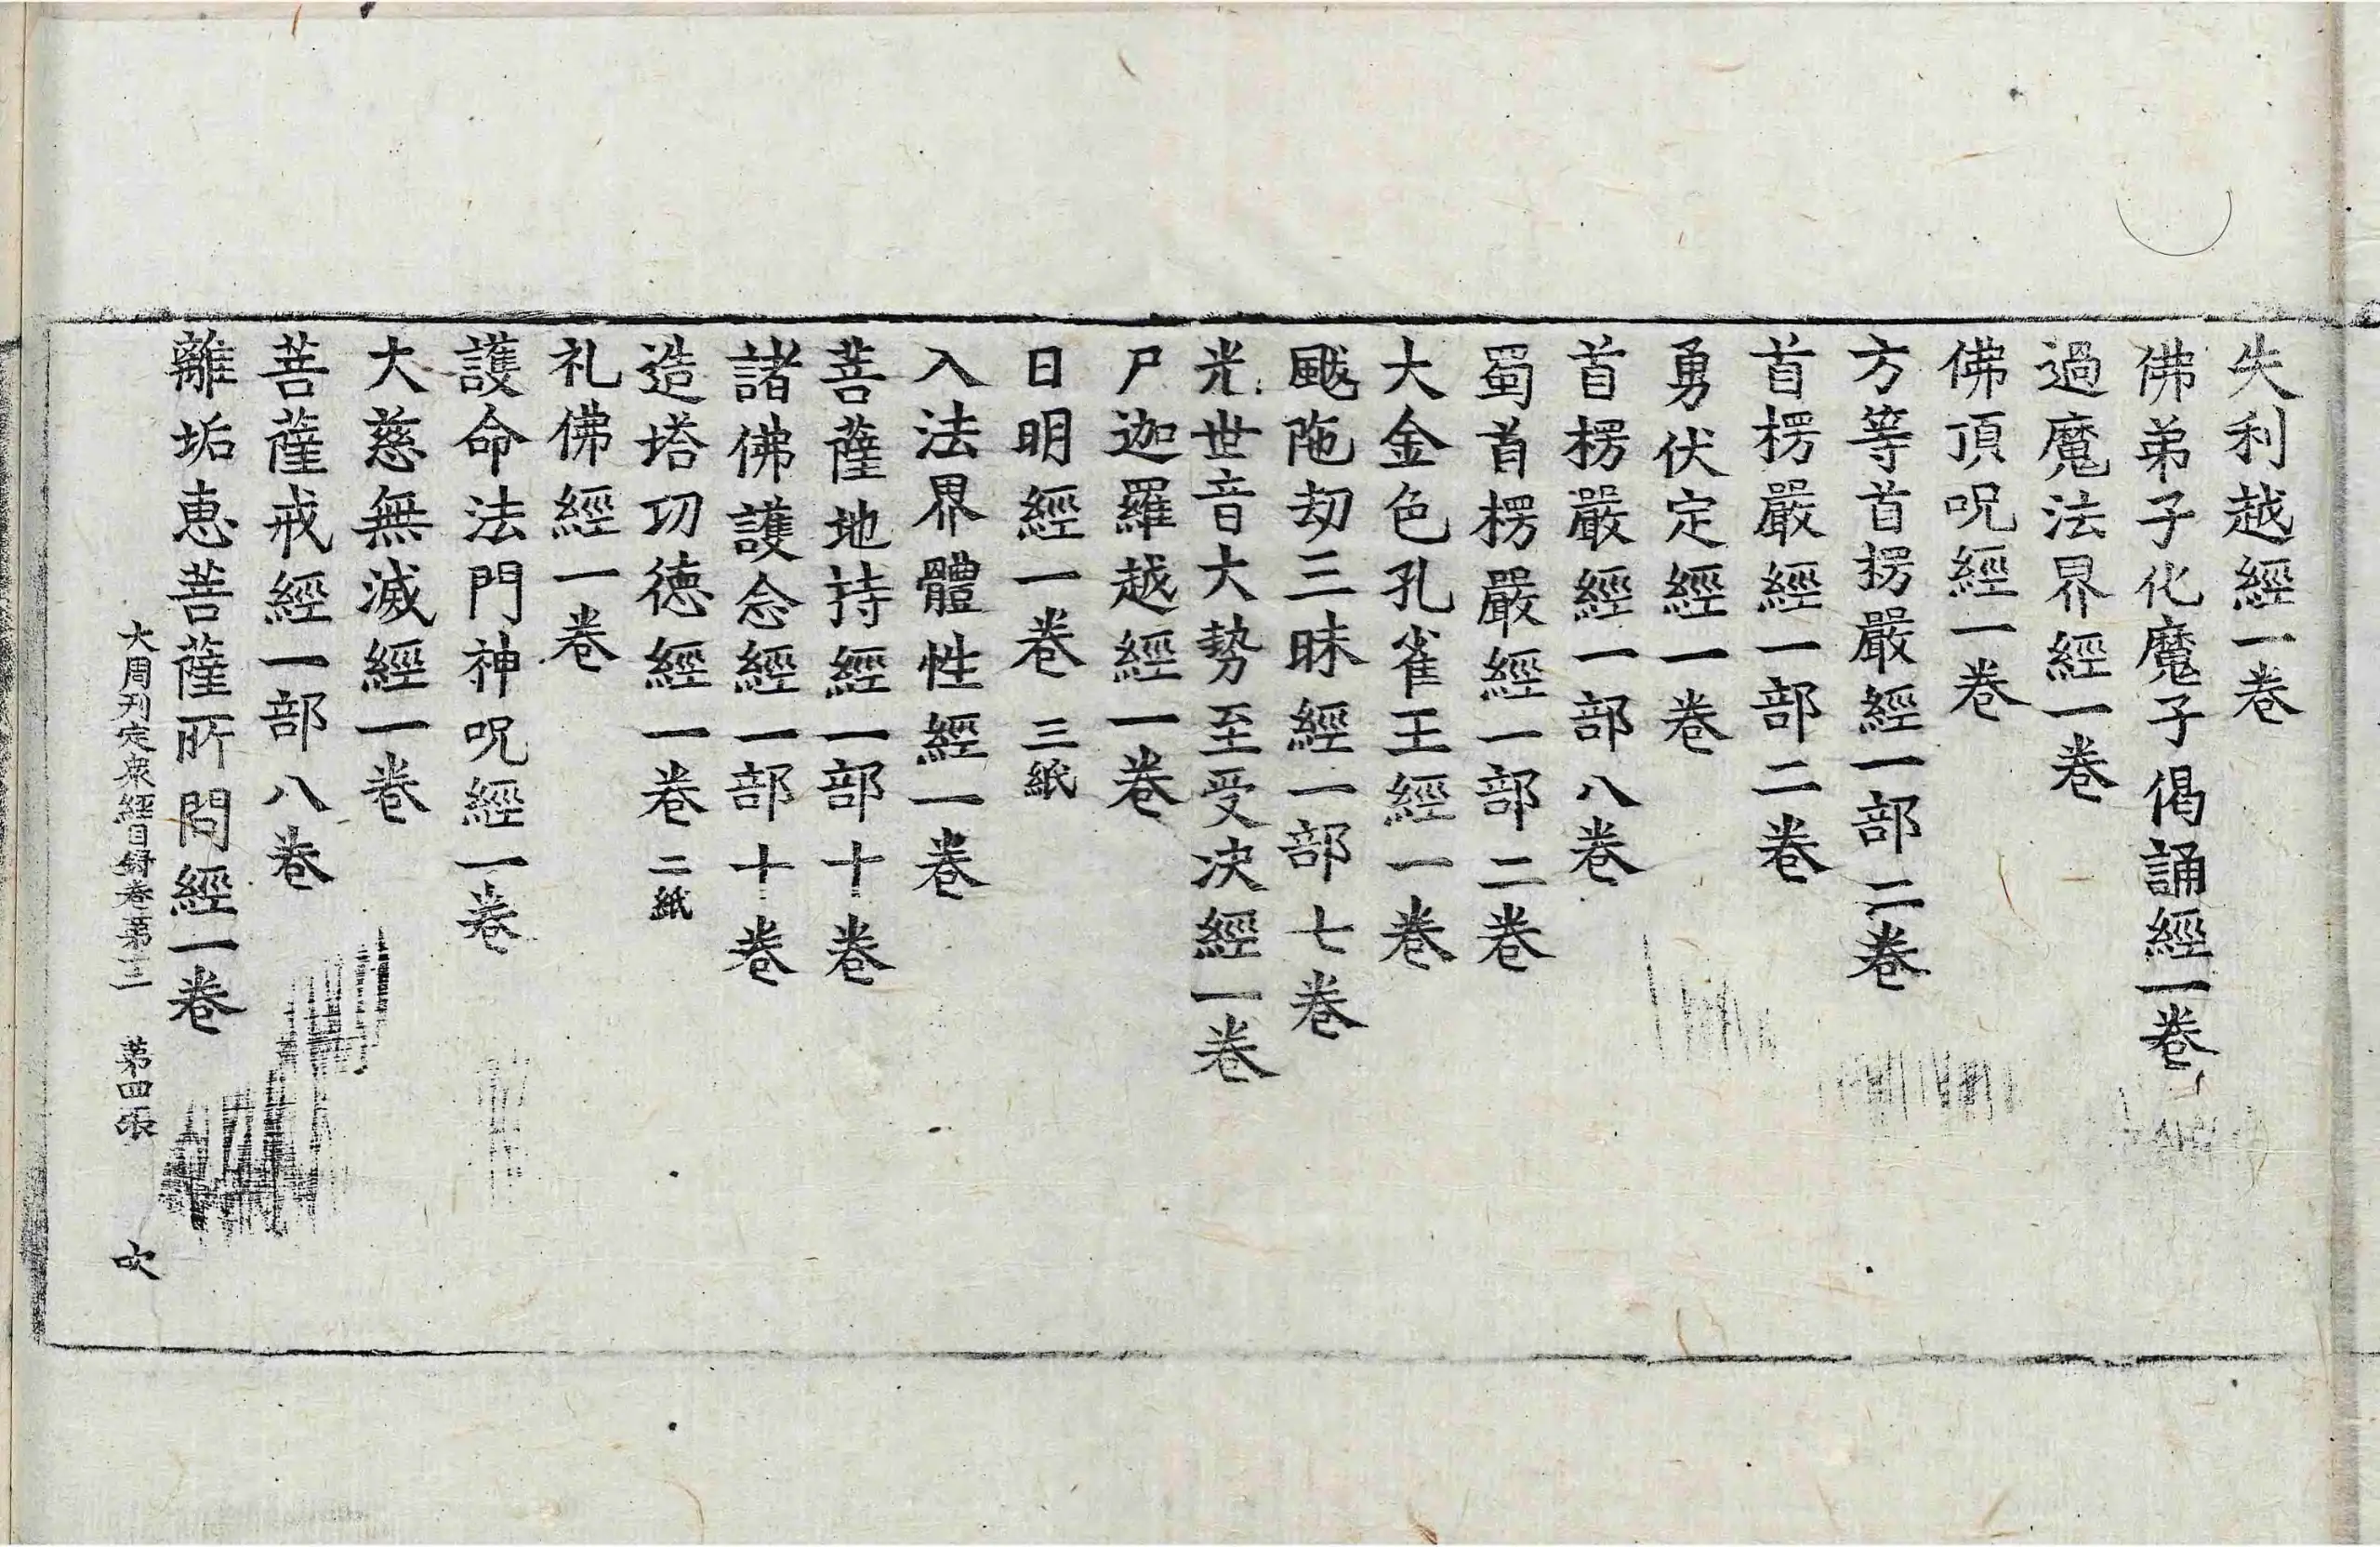 失利越經一卷
佛弟子化魔子偈誦經一卷
過魔法界經一卷
佛頂呪經一卷
方等首楞嚴經一部二卷
首楞嚴經一部二卷
勇伏定經一卷
首楞嚴經一部八卷
蜀首楞嚴經一部二卷
大金色孔雀王經一卷
颰陁劫三昧經一部七卷
光世音大勢至受決經一卷
尸迦羅越經一卷
日明經一卷 三紙
入法界體性經一卷
菩薩地持經一部十卷
諸佛護念經一部十卷
造塔功德經一卷 二紙
礼佛經一卷
護命法門神呪經一卷
大慈無滅經一卷
菩薩戒經一部八卷
離垢惠菩薩所問經一卷
大周刊定衆經目録卷第三 第四張